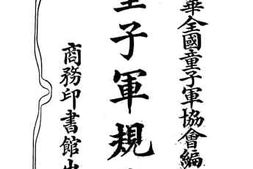 華全國童子軍協會編
童子軍規
商務印書館出